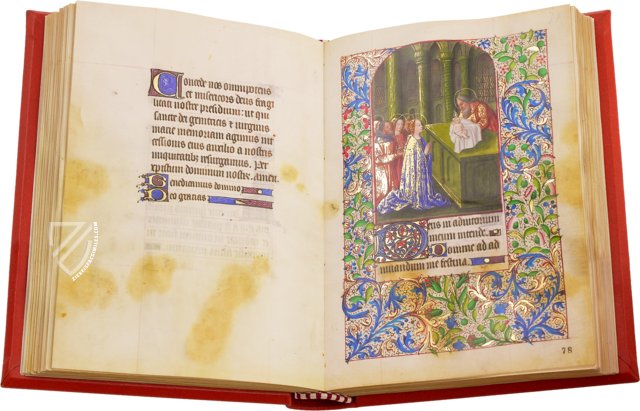 Concede nos omnipotens
et misericors deus fragi
litati nostre presidium: ut qui
sancte dei genitricis et virginis
marie memoriam agimus in
cessionis eius auxilio a nostris
iniquitatibus resurgamus. Per
xpistum dominum nostre. Amen.
Benedicamus domino
Deo gratias
Deus in adiutorium
meum intende.
Domine ad ad
iuuandum me festina.
78
ZIEREIS FACSIMILES.COM